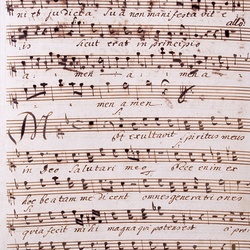 ni et judicta, Sua non manifesta vit e
allo
is sicut erat in principio
a: men a: men a
men amen
M
Et exultavit spiritus meus
in deo salutari meo Ecce enim ex
hoc beatam me dicent omnes generationes
quia fecit mihi magna qui potens est